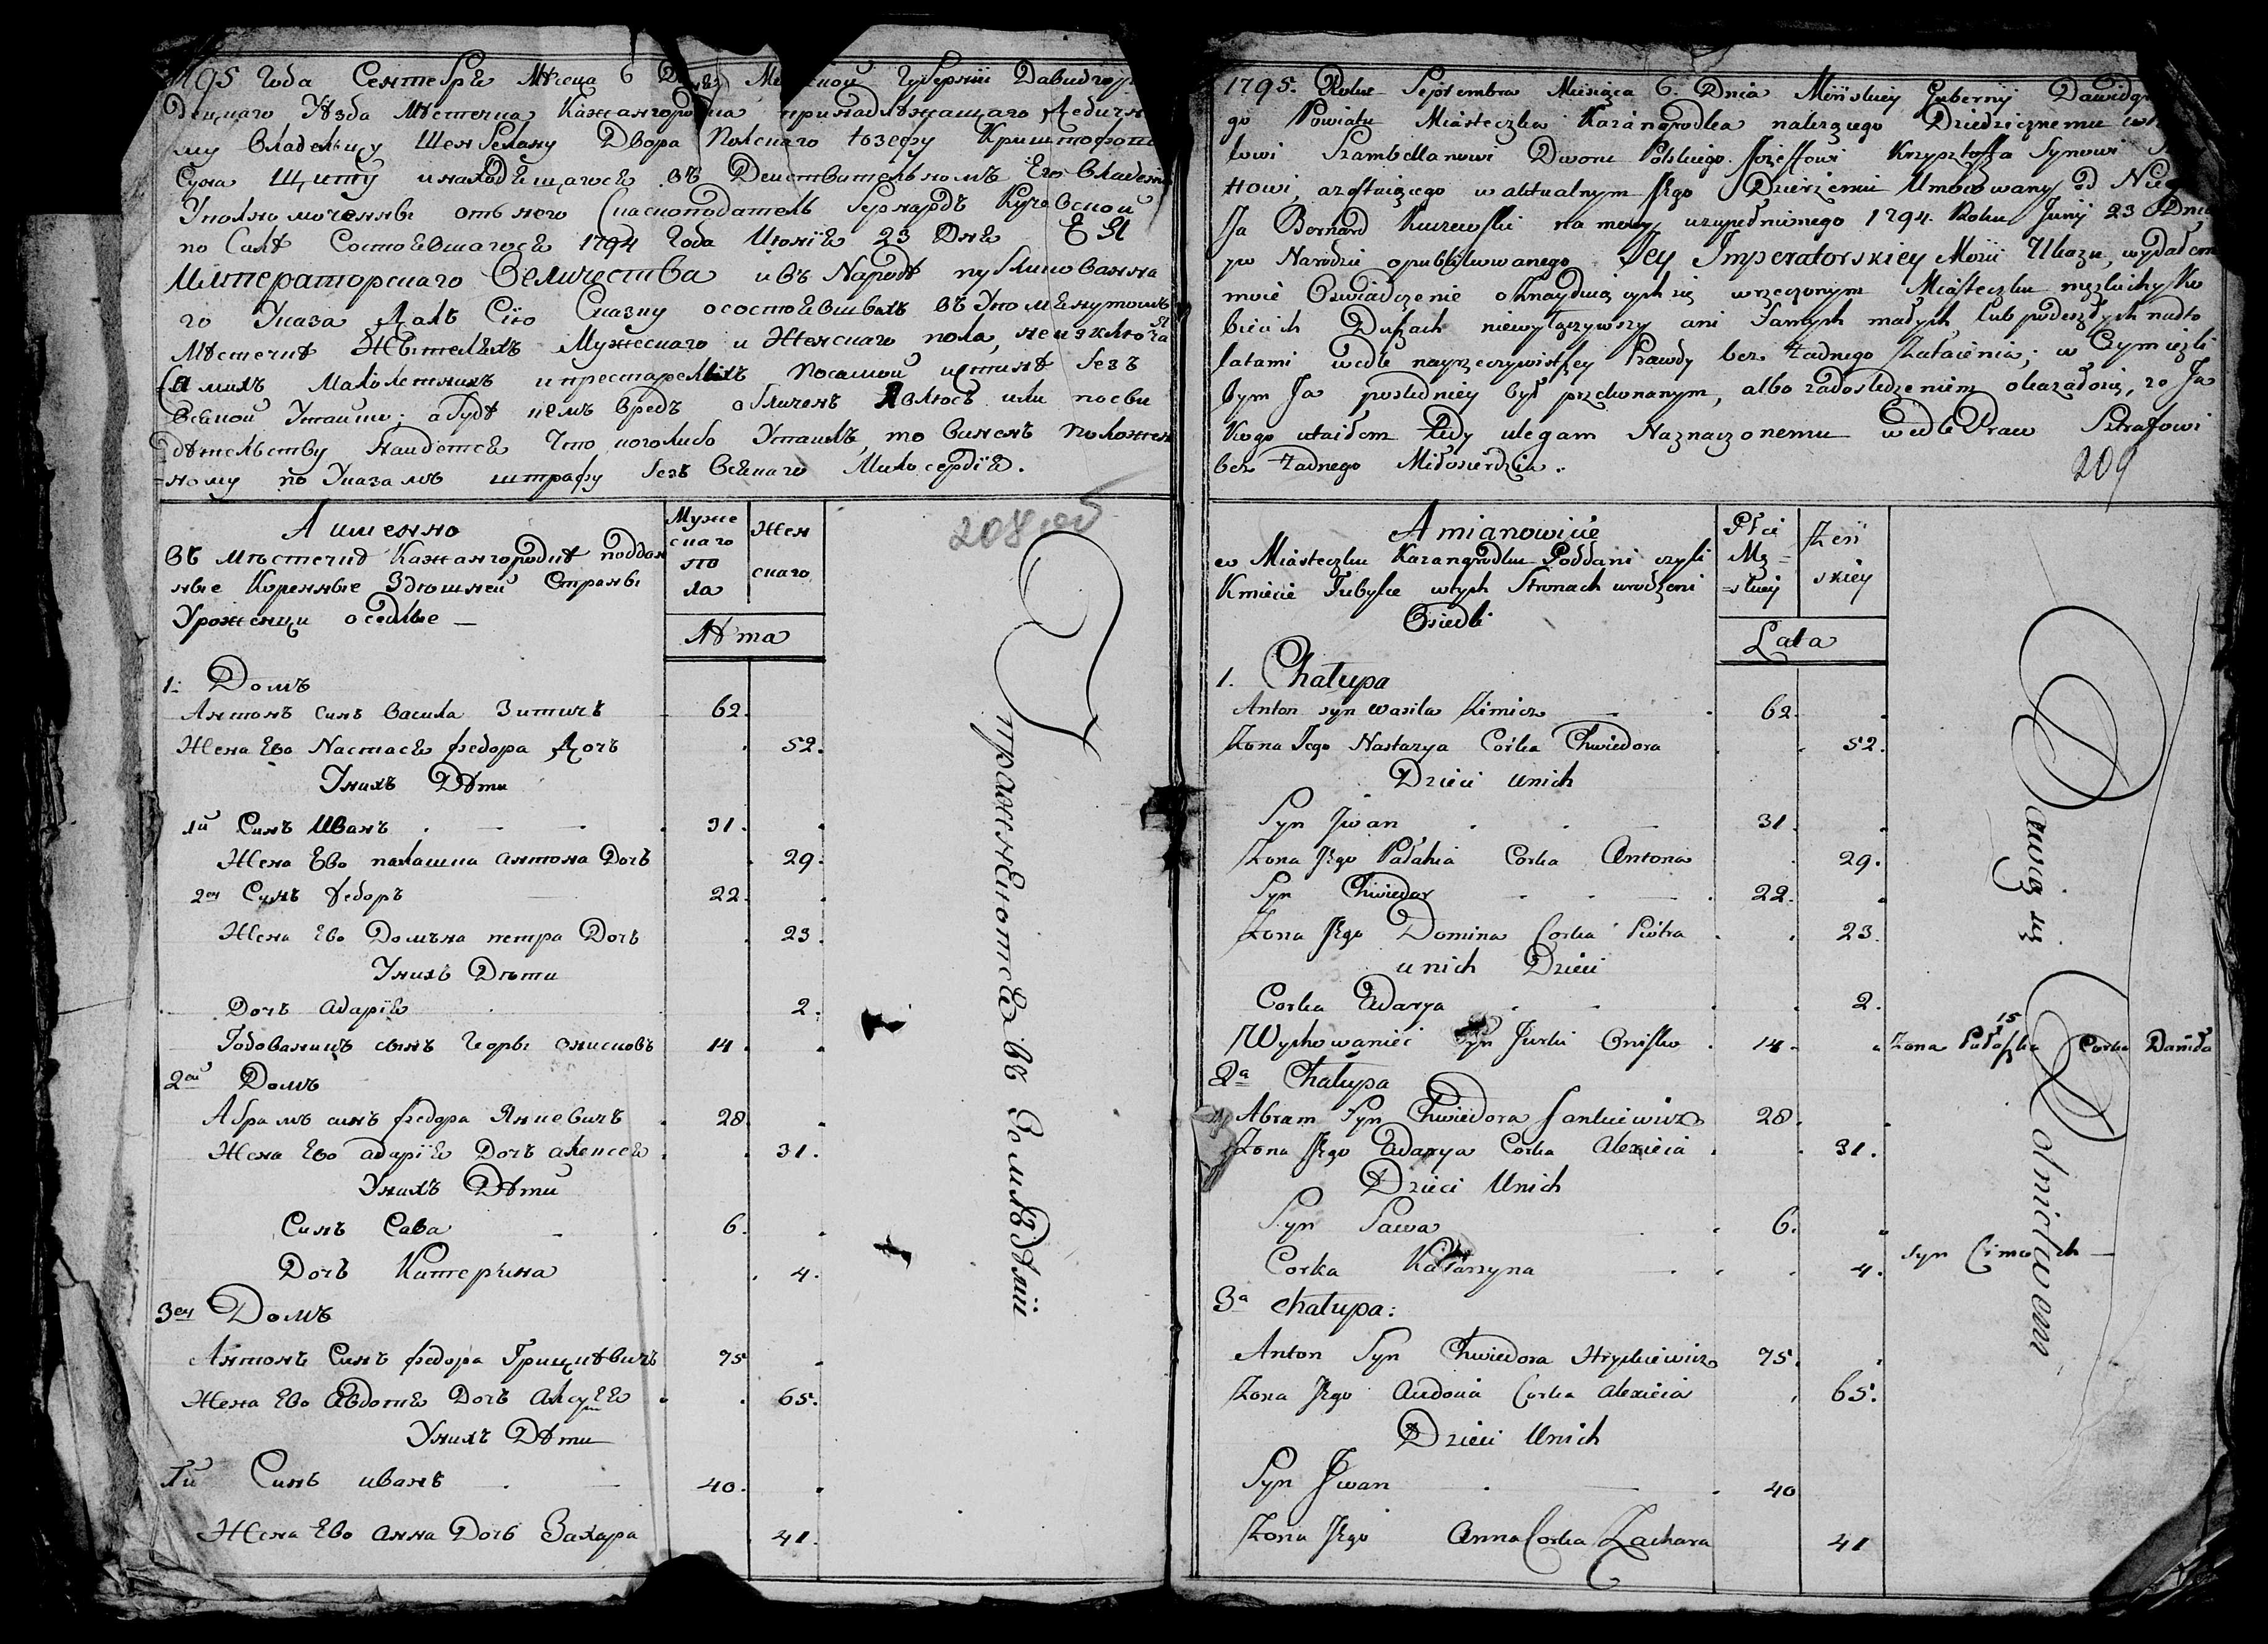 1795 года Сентебрѣ Мѣсеца 6 Губерніи
Уѣзда Мѣстечка принадлѣжащаго
му владелцу Шенбелану Двора Полскаго Іозефу
Сына Щиту инаходещагосе въ Действителномъ Его владении
Уполномоченны отъ него Скаскоподатель Бернардъ Кучевскои
по Силѣ Состоевшагосе 1794 года Июніе 23 Дне Е Я
Императорскаго Величества ивъ Народѣ публикованна
го Указа Далъ Сію Сказку осостоевшихъ въ Упоменутомъ
Мѣстечкѣ Жителехъ Мужескаго и Женскаго пола, неизключая
Самихъ Малолетнихъ ипрестарелихъ посамой истинѣ безъ
Всекой Утайки; абудѣ чемъ вредъ обличенъ Явлюсь или посви
дѣтельству Найдетсе Что коголибо Утаилъ, то виненъ положен
=ному по Указамъ штрафу безъ Всекаго Милосердіе.
Аименно
въ мѣстечкѣ Кажангородкѣ поддан
ные Коренные Здешней Страны
Уроженци оседлые —
Муже
скаго
по
ла
Жен
скаго
Лѣта
208 об
1. Домъ
Антонъ синъ василa Зимичъ 62.
Жена Ево Настасе федора Дочъ 52.
Унихъ Дѣти
1й Синъ Иванъ 31.
Жена Ево палашка антона Дочъ 29.
2ой Синъ Федоръ 22.
Жена Ево Домѣна петра Дочъ 23.
Унихъ Дѣти
Дочъ адаріе 2.
Годованицъ сынъ Юрки Онисковъ 14.
2ой Домъ
Абрамъ синъ федора Янкевичъ 28
Жена Ево адаріе Дочъ алексее 31.
Унихъ Дѣти
Синъ Сава 6.
Дочъ Катерина 4.
3ей Домъ
Антонъ Синъ федора Грицкѣвичъ 75
Жена Ево Авдоте Дочъ 65.
Унихъ Дѣти
1й Синъ иванъ 40.
Жена Ево анна Дочъ Захара 41.
Упражняютсе въ Земледѣліи
1795. Roku Septembra Miesiąca 6. Dnia Mińskiey Gubernij
go Powiatu Miasteczka Kazangrodka należącego Dziedzicznemu
lowi Szambellanowi Dworu Polskiego Jozeffowi Krzysztoffa Synowi
ttowi, azostaiącego w aktualnym Jego Dzierżeniu Umocowany od Niego
Ja Bernard Kuczewski na mocy uzupełnionego 1794. Roku Junij 23 Dnia
yw Narodzie opublikowanego Jey Imperatorskiey Mości Ukazu, wydałem
moie Oswiadczenie oznayduiących się wrzeczonym Miasteczku męskich y Ko
biecich Duszach niewyłączywszy ani Samych małych, lub podeszłych nadto
latami wedle nayrzeczywistszey Prawdy bez żadnego Zataienia; w Czymieżli
bym Ja posledniey był przekonanym, albo zadosledzeniem okazałosię, że Ja
Kogo utaiłem tedy ulegam Naznaczonemu wedle Praw Sztrafowi
bez żadnego Miłosierdzia.
209
Amianowicie
w Miasteczku Kazangrodku Poddani czyli
Kmiecie Tubylce wtych Stronach urodzeni
Osiedli
Płci
Mę=
=skiey
Żeń
skiey
Lata
1. Chałupa
Anton syn wasila Zimicz 62.
Zona Jego Nastazya Corka Chwiedora 52.
Dzieci unich
Syn Jwan 31.
Zona Jego Pałahia Corka Antona 29.
Syn Chwiedor 22.
Zona Jego Domina Corka Piotra 23.
unich Dzieci
Corka Adarya 2.
Wychowaniec Syn Jurki Onisko 14. Zona Pałaszka 15 Corka Daniła
2a Chałupa
Abram Syn Chwiedora Jankiewicz 28.
Zona Jego Adarya Corka Alexieia 31.
Dzieci Unich
Syn Sawa 6.
Corka Katarzyna 4. syn
3a chałupa:
Anton Syn Chwiedora Hryckiewicz 75.
Zona Jego Audocia Corka Alexieia 65.
Dzieci Unich
Syn Jwan 40
Zona Jego Anna Corka Zachara 41
Bawią się Rolnictwem